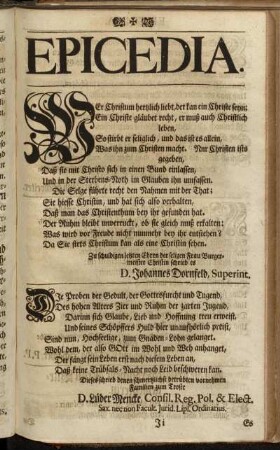 EPICEDIA.
WEr Christum hertzlich liebt, der kan ein Christe seyn;
Ein Christe gläubet recht, er muß auch Christlich
leben,
So stirbt er seliglich, und das ist es allein,
Was ihn zum Christen macht. Nur Christen ists
gegeben,
Daß sie mit Christo sich in einen Bund einlassen,
Und in der Sterbens-Noth im Glauben ihn umfassen.
Die Selge führte recht den Nahmen mit der That:
Sie hiesse Christin, und hat sich also verhalten,
Daß man das Christenthum bey ihr gefunden hat.
Der Ruhm bleibt unverruckt, ob sie gleich muß erkalten:
Was wird vor Freude nicht nunmehr bey ihr entstehen?
Da Sie stets Christum kan als eine Christin sehen.
Zu schuldigen letzten Ehren der seligen Frau Burger-
meister Christin schrieb es
D. Johannes Dornfeld, Superint.
DIe Proben der Gedult, der Gottesfurcht und Tugend,
Des hohen Alters Zier und Ruhm der zarten Jugend,
Darinn sich Glaube, Lieb und Hoffnung treu erweist,
Und seines Schöpffers Huld hier unaufhörlich preist,
Sind nun, Hochselige, zum Gnaden-Lohn gelanget.
Wohl dem, der also GOtt im Wohl und Weh anhanget,
Der fängt sein Leben erst nach diesem Leben an,
Daß keine Trübsals-Nacht noch Leid beschweren kan.
Dieses schrieb denen schmertzlichst betrübten vornehmen
Familien zum Troste
D. Lüder Mencke, Consil. Reg. Pol. & Elect.
Sax. nec non Facult. Jurid. Lips. Ordinarius.
Ji Es